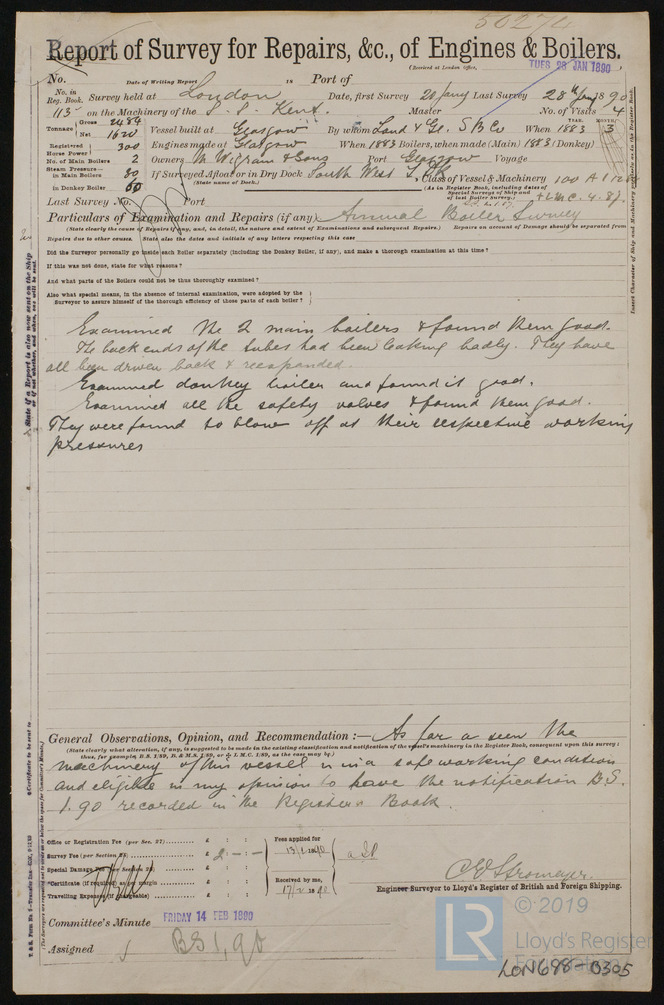 50274
Report of Survey for Repairs, &c., of Engines & Boilers.
(Received at London Office, TUES 28 JAN 1890)
No. Date of Writing Report 18 Port of
No. in Reg. Book. Survey held at London Date, first Survey 20 Jany Last Survey 28th Jany 1890
115 on the Machinery of the S.S. Kent. Master No. of Visits 4
Tonnage Gross 2484 Net 1620 Vessel built at Glasgow By whom Lond & Gl. S B Co When YEAR. 1883 MONTH. 3
Registered Horse Power 300 Engines made at Glasgow When 1883 Boilers, when made (Main) 1883 (Donkey)
No. of Main Boilers 2 Owners M Wigram & Sons Port Glasgow Voyage
Steam Pressure— in Main Boilers 80 If Surveyed Afloat or in Dry Dock South West I. Dk Class of Vessel & Machinery 100 A 1
(State name of Dock.) (As in Register Book, including dates of Special Surveys of Ship and of last Boiler survey.)
in Donkey Boiler 60 + L M C. 4. 87.
Last Survey No. Port
Particulars of Examination and Repairs (if any) Annual Boiler Survey
(State clearly the cause of Repairs if any, and, in detail, the nature and extent of Examinations and subsequent Repairs.) Repairs on account of Damage should be separated from
Repairs due to other causes. State also the dates and initials of any letters respecting this case
Did the Surveyor personally go inside each Boiler separately (including the Donkey Boiler, if any), and make a thorough examination at this time?
If this was not done, state for what reasons?
And what parts of the Boilers could not be thus thoroughly examined?
Also what special means, in the absence of internal examination, were adopted by the
Surveyor to assure himself of the thorough efficiency of those parts of each boiler?
Examined the 2 main boilers & found them good.
The back ends of the tubes had been leaking badly. They have
all been driven back & reexpanded.
Examined donkey boiler and found it good.
Examined all the safety valves & found them good.
They were found to blow off at their respective working
pressures
General Observations, Opinion, and Recommendation :— As far a seen the
(State clearly what alteration, if any, is suggested to be made in the existing classification and notification of the vessel's machinery in the Register Book, consequent upon this survey:
thus, for example, B.S. 1/89, B. & M.S. 1/89, or L.M.C. 1/89, as the case may be.)
machinery of this vessel is in a safe working condition
and eligible in my opinion to have the notification B.S.
1.90 recorded in the Register Book.
Office or Registration Fee (per Sec. 27) £ : : Fees applied for
Survey Fee (per Section 28) £ 2 : - : - 13/2 1890
Special Damage Fee (per Section 28) £ : :
*Certificate (if required) as per margin £ : : Received by me,
Travelling Expenses (if chargeable) £ : : 17/2 1890
C E Stromeyer.
Engineer Surveyor to Lloyd's Register of British and Foreign Shipping.
Committee's Minute FRIDAY 14 FEB 1890
Assigned BS 1,90
© 2019
LR Lloyd's Register
Foundation
LON698-0305